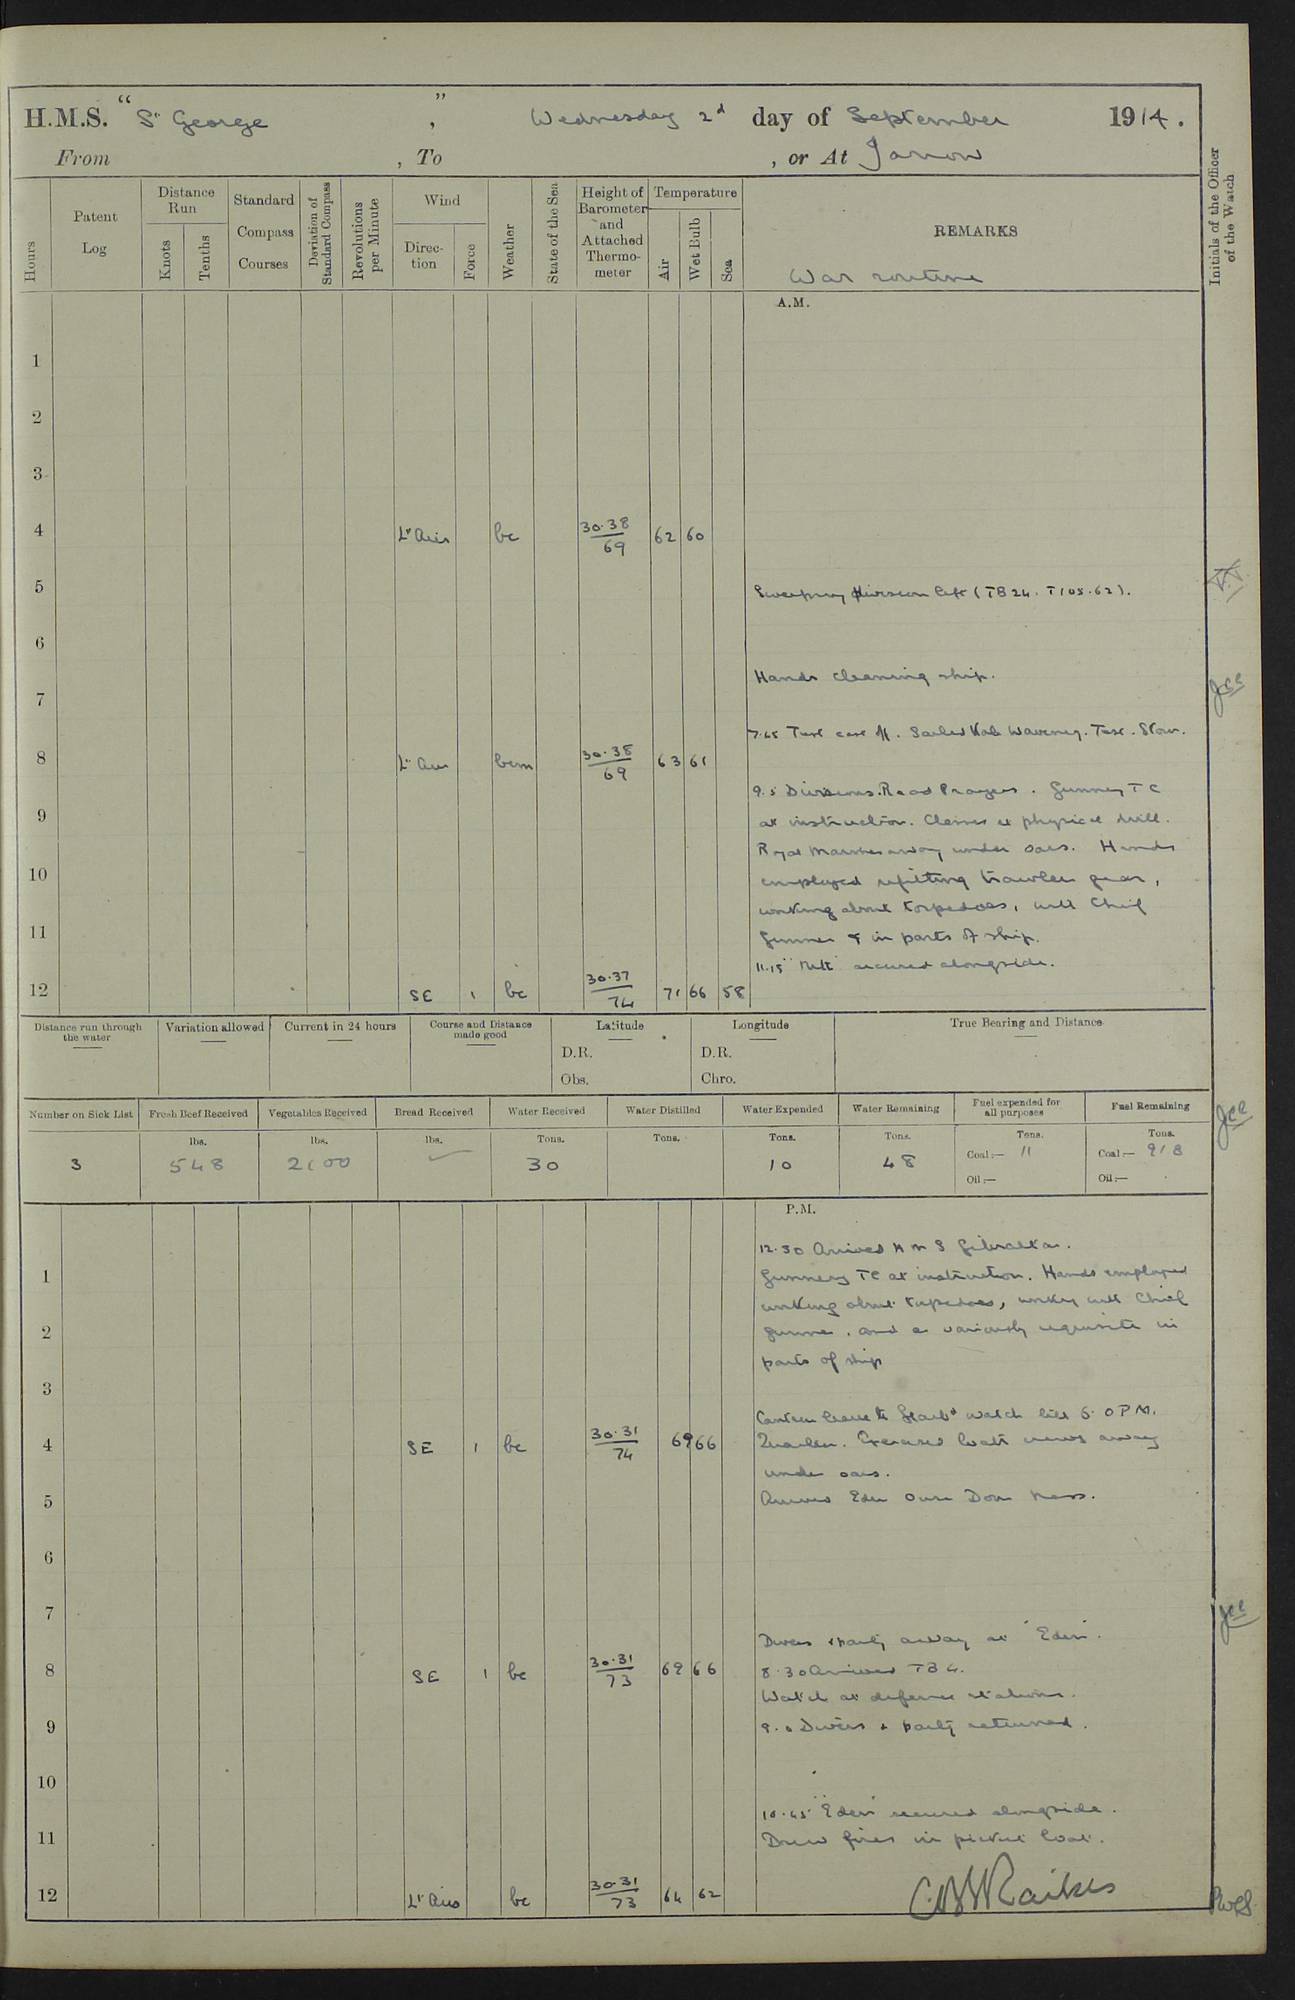 H.M.S. “St George”, Wednesday 2d day of September 1914.
From , To , or At Jarrow
Hours
Patent Log
Distance Run
Knots
Tenths
Standard Compass Courses
Deviation of Standard Compass
Revolutions per Minute
Wind
Direction
Force
Weather
State of the Sea
Height of Barometer and Attached Thermometer
Temperature
Air
Wet Bulb
Sea
REMARKS
War routine
Initials of the Officer of the Watch
A.M.
1
2
3
4 Lt Airs bc 30.38 69 62 60
5 Sweeping division left (TB 24. T 105. 62).
6
Hands cleaning ship.
7
7.45 Test cast off. Sailed Waveney. Test. Stour.
8 Lt Airs bcm 30.38 69 63 61
9.5 Divisions. Read Prayers. Gunnery T C
9 at instruction. Classes at physical drill.
Royal Marines away under oars. Hands
10 employed refitting trawler gear,
working about torpedoes, with Chief
11 Gunner & in parts of ship.
11.15 secured alongside.
12 SE 1 bc 30.37 74 71 66 58
Distance run through the water
Variation allowed
Current in 24 hours
Course and Distance made good
Latitude
D.R.
Obs.
Longitude
D.R.
Chro.
True Bearing and Distance
Number on Sick List
Fresh Beef Received
Vegetables Received
Bread Received
Water Received
Water Distilled
Water Expended
Water Remaining
Fuel expended for all purposes
Fuel Remaining
lbs. lbs. lbs. Tons. Tons. Tons. Tons. Tons. Tons.
3 548 30 10 48 Coal:— 11 Coal:— 918
Oil:— Oil:—
P.M.
12.30 Arrived H M S Gibraltar.
1 Gunnery TC at instruction. Hands employed
working about torpedoes, working with Chief
2 Gunner, and as variously requisite in
parts of ship
3
Canteen leave to Starbd watch till 6.0 PM.
4 SE 1 bc 30.31 74 69 66 Quarters. Exercised boats crews away
under oars.
5 Arrived Eden Ouse Doon Ness.
6
7
Divers & party away at "Eden".
8 SE 1 bc 30.31 73 69 66 8.30 Arrived TB 4.
Watch at defence stations.
9 9.0 Divers & party returned.
10
10.45 "Eden" secured alongside.
11 Drew fires in picket boat.
12 Lt Airs bc 30.31 73 64 62
Raikes